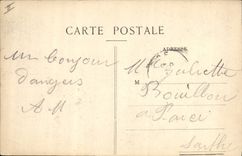 CARTE POSTALE
ADRESSE
Un bonjour
d'angers
A. M
M
Mlle Juliette
Bouillon
a
Sarthe